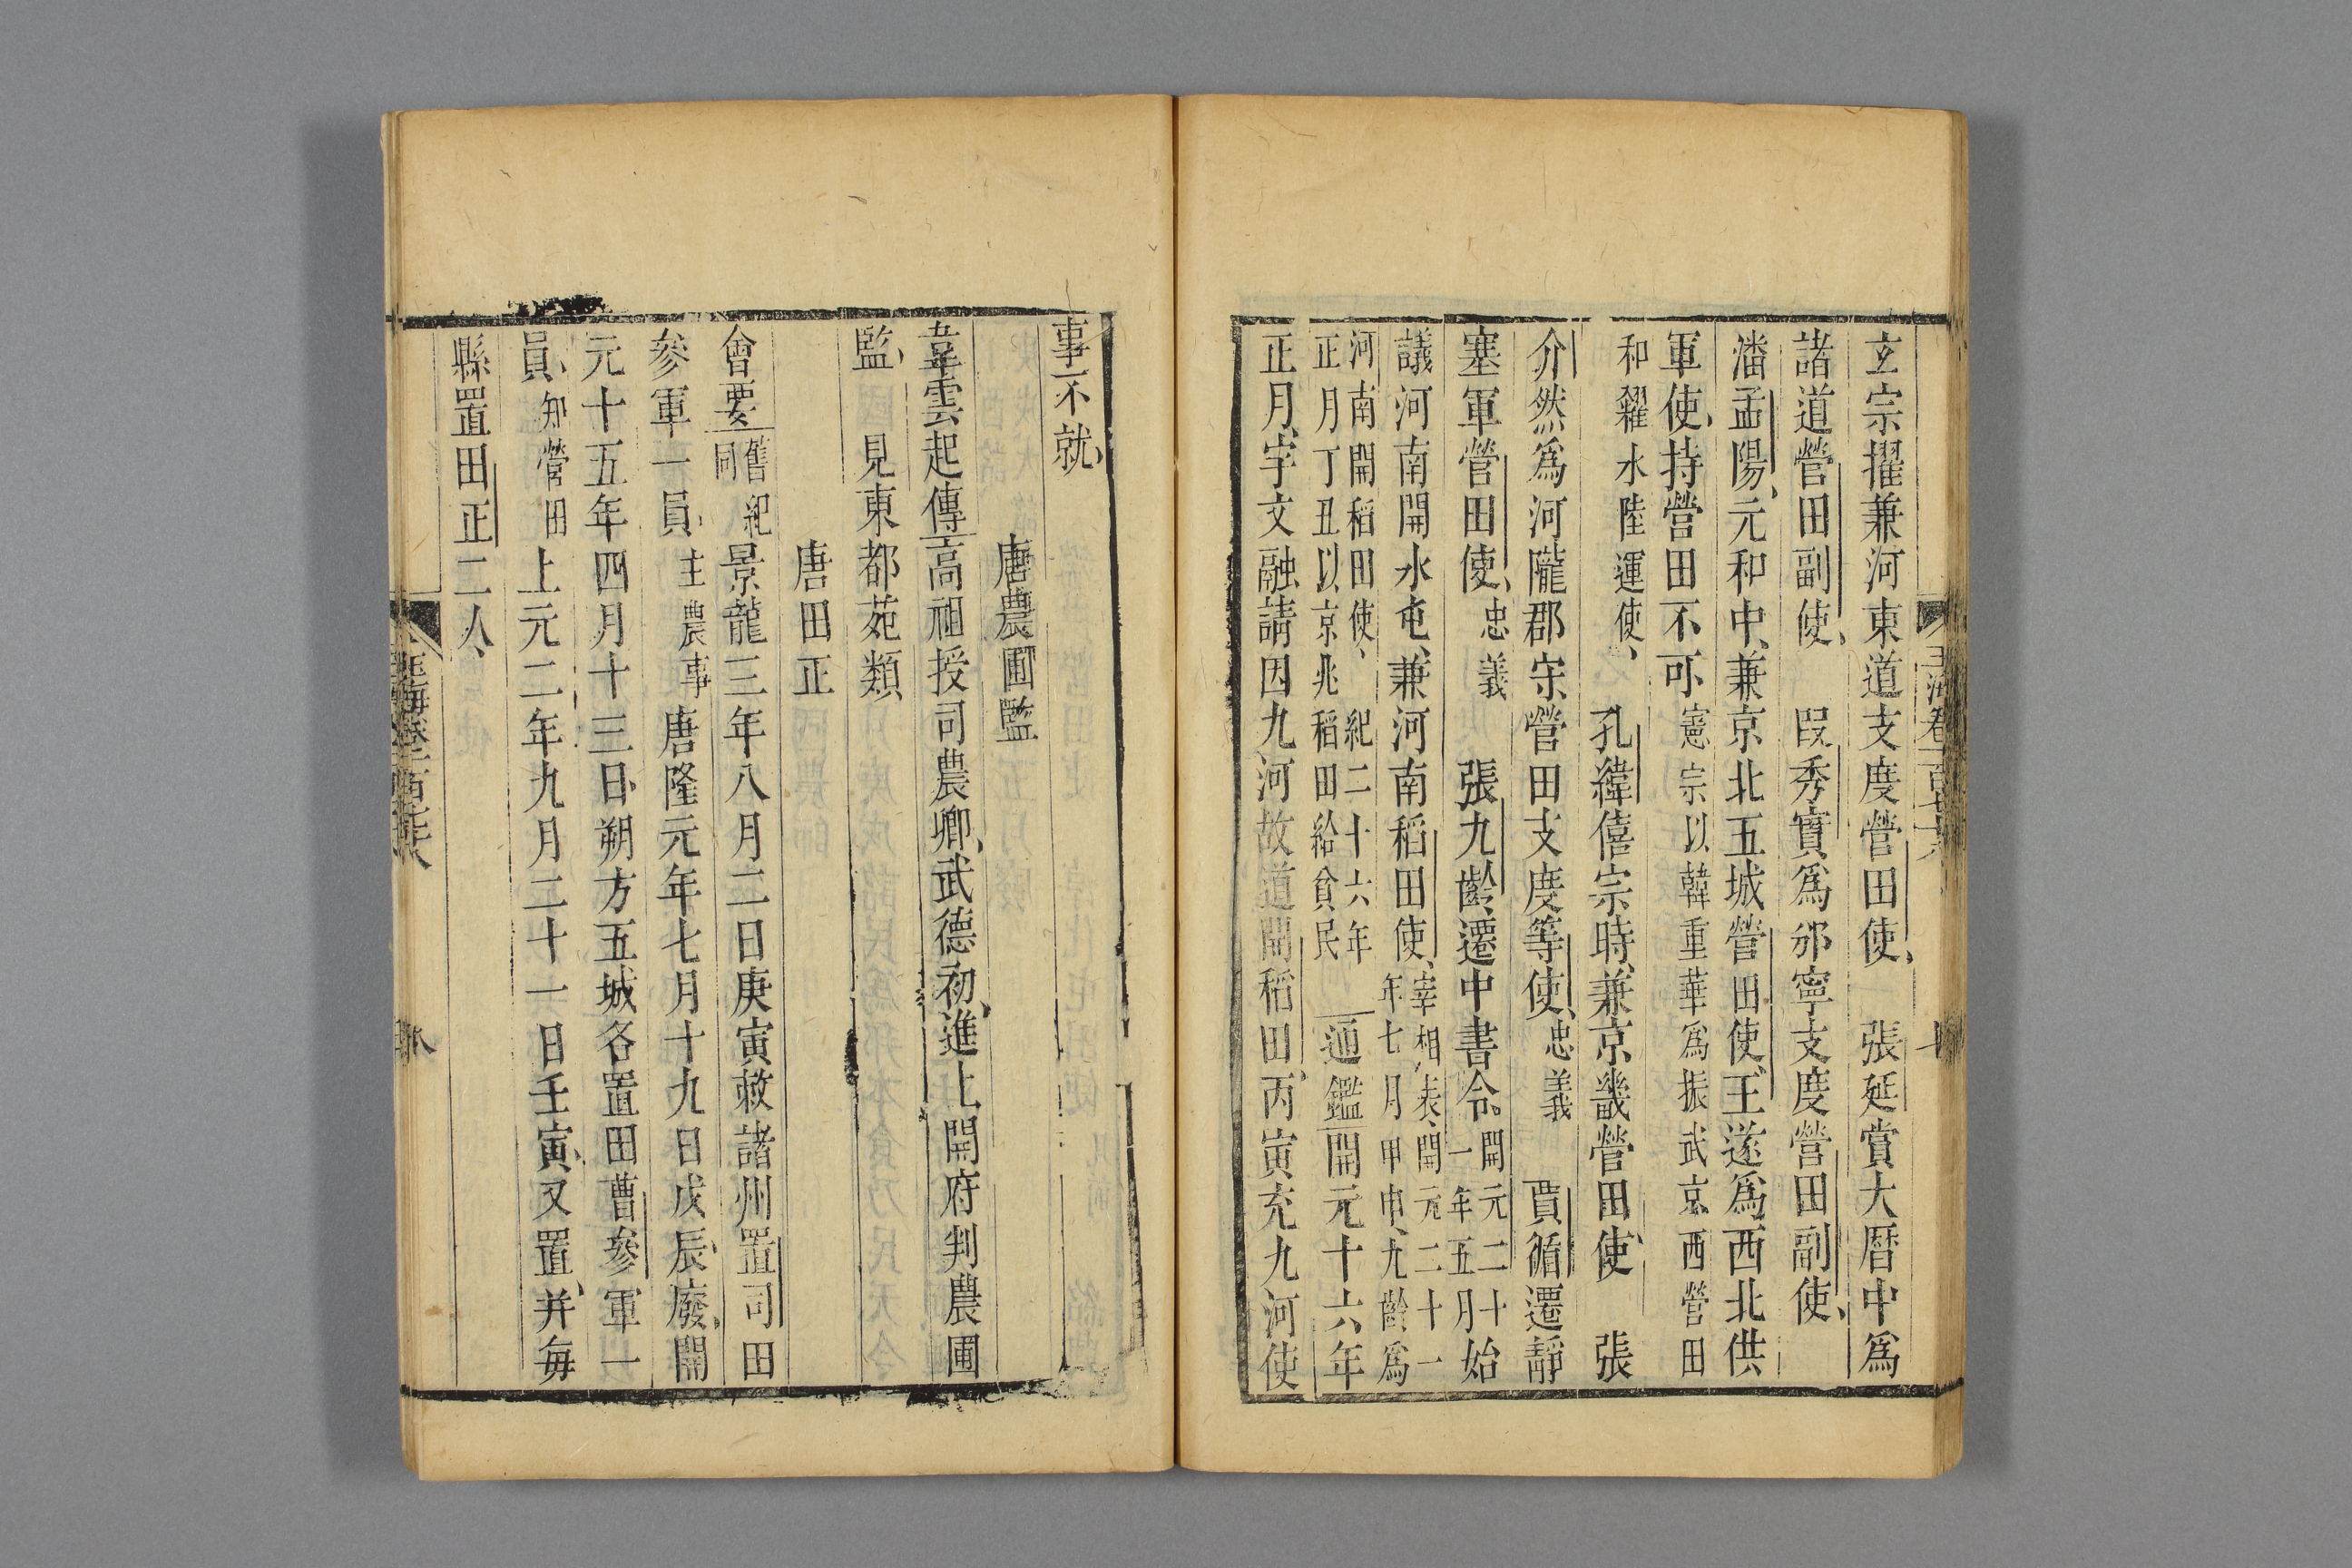 玄宗擢兼河東道支度營田使、張延賞大曆中爲
諸道營田副使、段秀實爲邠寧支度營田副使、
潘孟陽、元和中、兼京北五城營田使、王遂爲西北供
軍使、持營田不可憲宗以韓重華爲振武京西營田
和糴水陸運使、孔緯僖宗時、兼京畿營田使、張
介然爲河隴郡守營田支度等使、忠義賈循遷靜
塞軍營田使、忠義張九齡、遷中書令。開元二十一年五月始
議河南開水屯、兼河南稻田使、宰相表、開元二十一年七月甲申、九齡爲
河南開稻田使、紀二十六年正月丁丑以京兆稻田給貧民通鑑開元十六年
正月、宇文融請因九河故道開稻田、丙寅充九河使
玉海卷一百七十六
事不就、
唐農圃監
韋雲起傳高祖授司農卿、武德初、進上開府判農圃
監、見東都苑類、
唐田正
會要舊紀同景龍三年八月二日庚寅敕諸州置司田
參軍一員、主農事唐隆元年七月十九日戊辰、廢、開
元十五年四月十三日、朔方五城各置田曹參軍一
員、知營田上元二年九月二十一日壬寅、又置、并每
縣置田正二人、